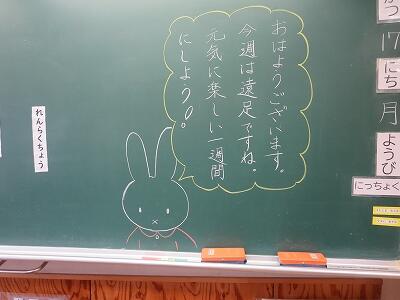 がつ
17
にち
月
ようび
にっちょく
おはようございます。
今週は遠足ですね。
元気に楽しい一週間
にしよう!。
れんらくちょう